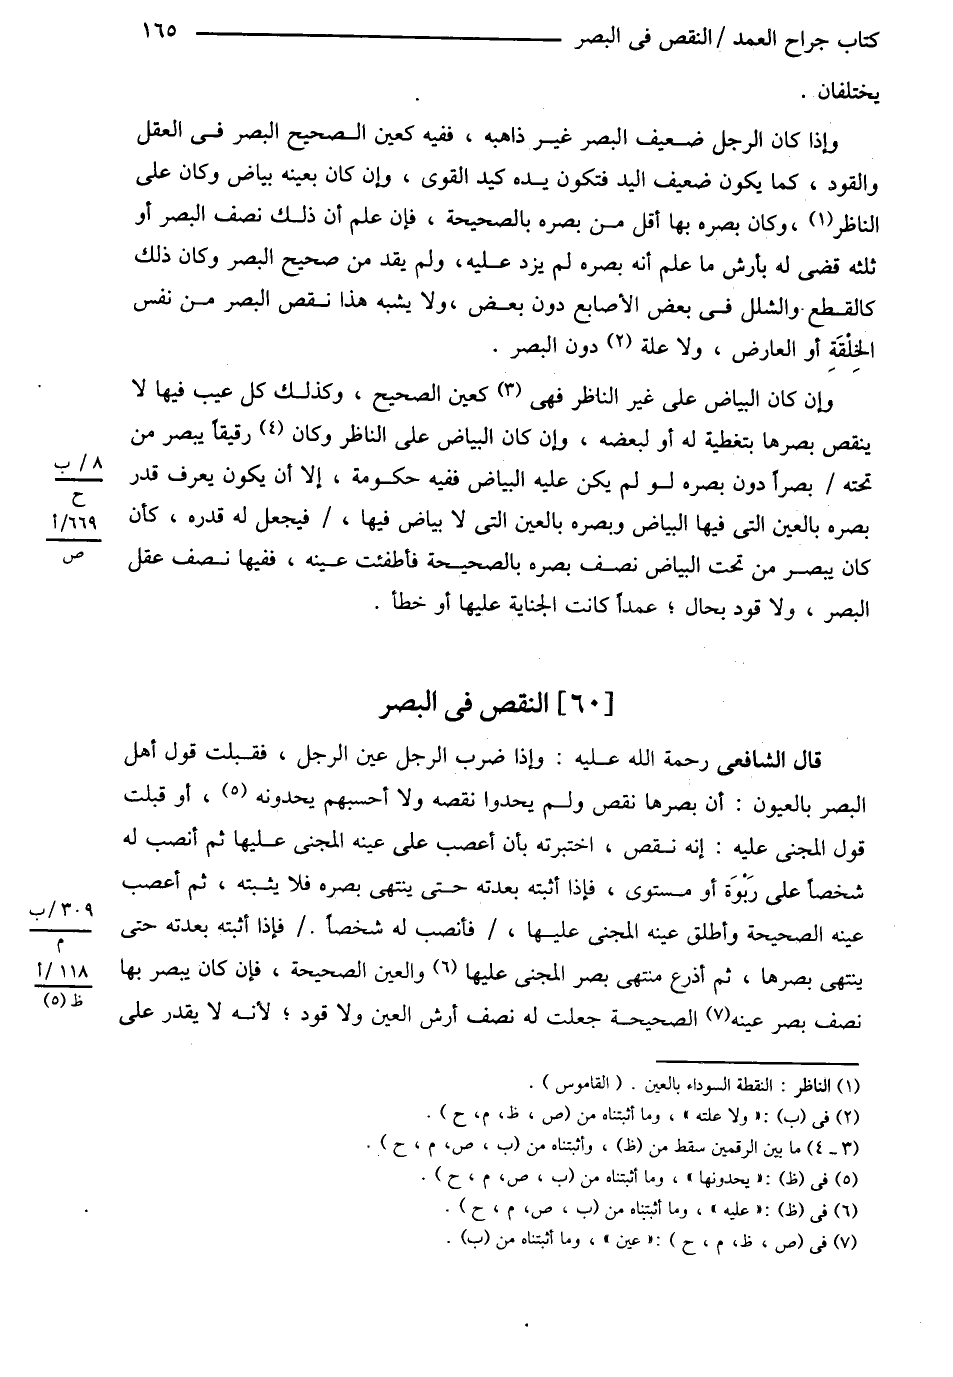 كتاب جراح العمد / النقص فى البصر ــــــــــــــــــــ ١٦٥
يختلفان .
وإذا كان الرجل ضـعيف البصر غيـر ذاهبه ، ففيه كعين الـصحيح البصر فـى العقل
والقود ، كما يكون ضعيف اليد فتكون يـده كيد القوى ، وإن كان بعينه بياض وكان على
الناظر(١) ، وكان بصره بها أقل مـن بصره بالصحيحة ، فإن علم أن ذلـك نصف البصر أو
ثلثه قضى له بأرش ما علم أنه بصره لم يزد عـليه، ولم يقد من صحيح البصر وكان ذلك
كالقـطع والشلل فـى بعض الأصابع دون بعـض ،ولا يشبه هذا نـقص البصر مـن نفس
الخِلْقَةِ أو العارض ، ولا علة (٢) دون البصر .
وإن كان البياض على غير الناظر فهى (٣) كعين الصحيح ، وكذلـك كل عيب فيها لا
ينقص بصرها بتغطية له أو لبعضه ، وإن كان البياض على الناظر وكان (٤) رقيقاً يبصر من
تحته / بصراً دون بصره لـو لم يكن عليه البياض ففيه حكـومة ، إلا أن يكون يعرف قدر
٨ / ب
ح
بصره بالعين التى فيها البياض وبصره بالعين التى لا بياض فيها ، / فيجعل له قدره ، كأن
٦٦٩/ أ
ص
كان يبصـر من تحت البياض نصـف بصره بالصحيـحة فأطفئت عـينه ، ففيها نـصف عقل
البصر ، ولا قود بحال ؛ عمداً كانت الجناية عليها أو خطأ .
[٦٠] النقص فى البصر
قال الشافعى رحمة الله عـليه : وإذا ضرب الرجل عين الرجل ، فقـبلت قول أهل
البصر بالعيون : أن بصرها نقص ولـم يحدوا نقصه ولا أحسبهم يحدونه (٥) ، أو قبلت
قول المجنى عليه : إنه نـقص ، اختبرته بأن أعصب على عينه المجنى عـليها ثم أنصب له
شخصاً على رَبْوَة أو مـستوى ، فإذا أثبته بعدته حـتى ينتهى بصره فلا يثـبته ، ثم أعصب
عينه الصحيحة وأطلق عينه المجنى عليـها ، / فأنصب له شخصاً ./ فإذا أثبته بعدته حتى
٣٠٩ / ب
م
ينتهى بصرها ، ثم أذرع منتهى بصر المجنى عليها (٦) والعين الصحيحة ، فإن كان يبصر بها
١١٨ / أ
ظ (٥)
نصف بصر عينه(٧) الصحيحـة جعلت له نصف أرش العين ولا قود ؛ لأنـه لا يقدر على
(١) الناظر : النقطة السوداء بالعين . ( القاموس ) .
(٢) فى (ب) :« ولا علته » ، وما أثبتناه من (ص ، ظ، م، ح ) .
(٣ ـ ٤) ما بين الرقمين سقط من (ظ) ، وأثبتناه من (ب ، ص، م ، ح ) .
(٥) فى (ظ) :« يحدونها » ، وما أثبتناه من (ب ، ص، م ، ح ) .
(٦) فى (ظ) :« عليه » ، وما أثبتناه من (ب ، ص، م ، ح ) .
(٧) فى (ص ، ظ، م ، ح ) :« عين » ، وما أثبتناه من (ب) .